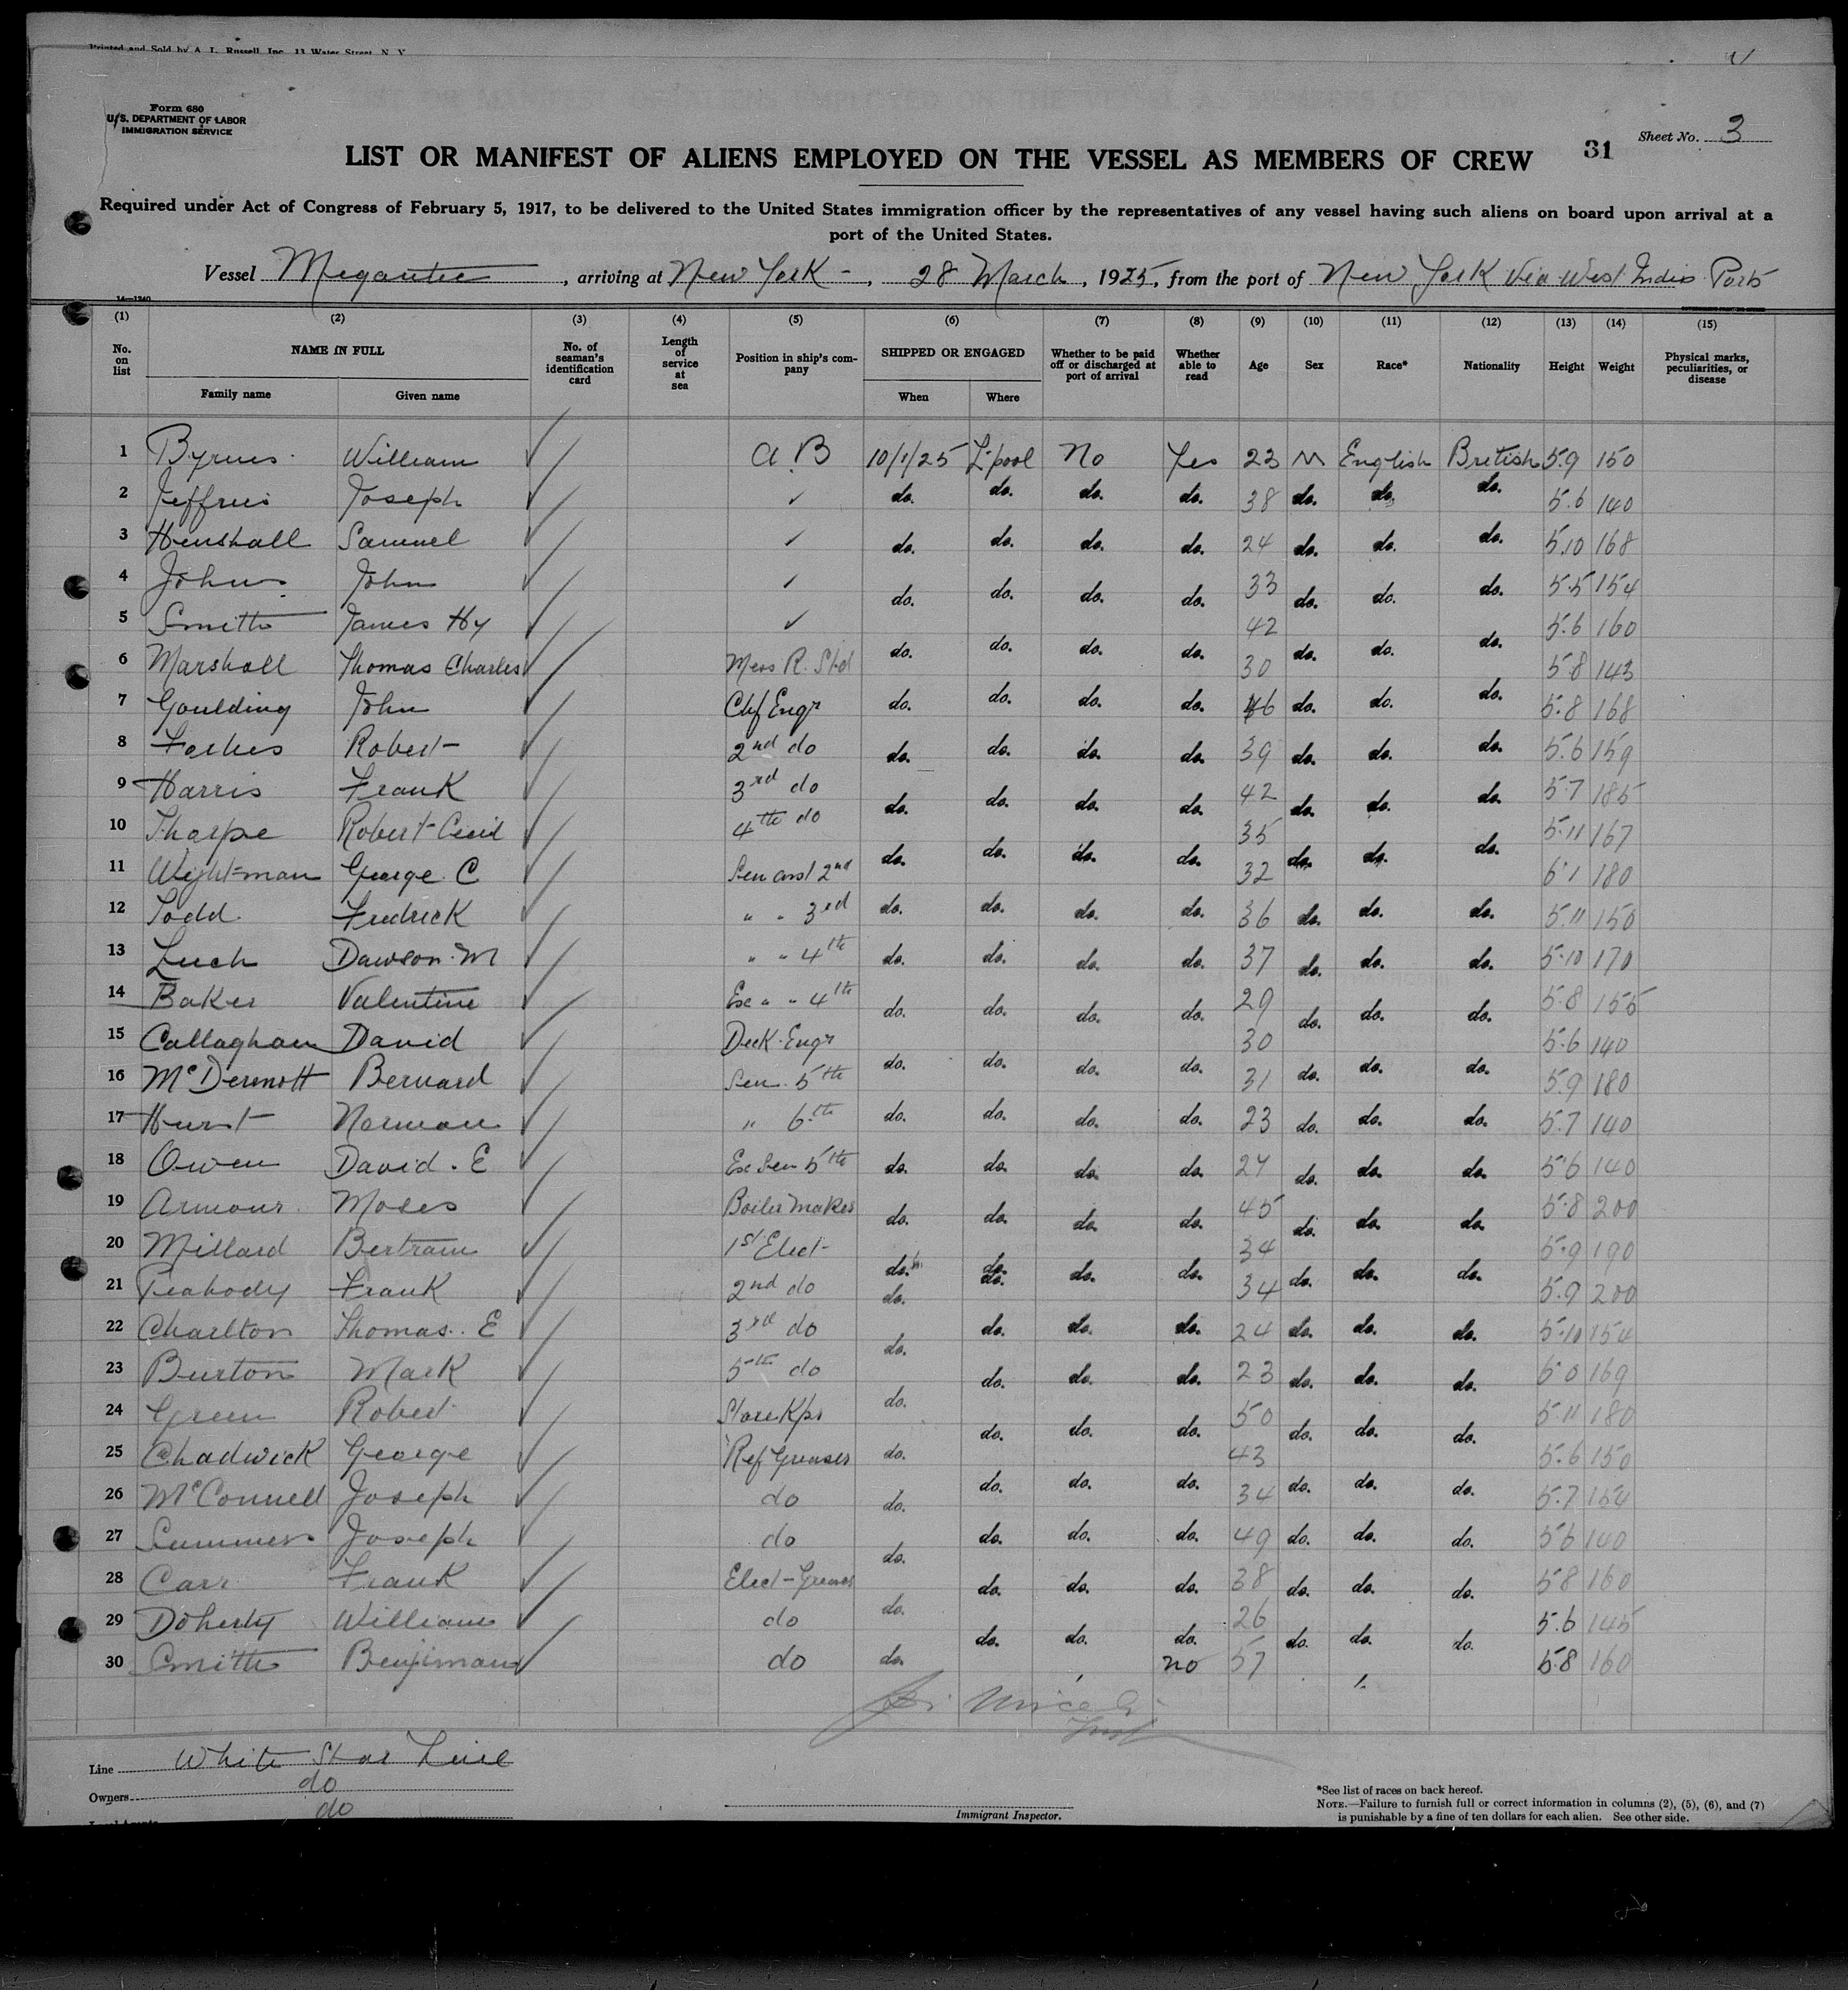 Printed and Sold by A. L. Russell, Inc., 13 Water Street, N. Y.
Form 680
U. S. DEPARTMENT OF LABOR
IMMIGRATION SERVICE
Sheet No. 3
31
LIST OR MANIFEST OF ALIENS EMPLOYED ON THE VESSEL AS MEMBERS OF CREW
Required under Act of Congress of February 5, 1917, to be delivered to the United States immigration officer by the representatives of any vessel having such aliens on board upon arrival at a
port of the United States.
Vessel Megantic, arriving at New York, 28 March, 1925, from the port of New York Via West Indies Ports
(1) (2) (3) (4) (5) (6) (7) (8) (9) (10) (11) (12) (13) (14) (15)
No. on list NAME IN FULL No. of seaman's identification card Length of service at sea Position in ship's company SHIPPED OR ENGAGED Whether to be paid off or discharged at port of arrival Whether able to read Age Sex Race* Nationality Height Weight Physical marks, peculiarities, or disease
Family name Given name When Where
1 Byrnes William A.B 10/1/25 L'pool No Yes 23 M English British 5.9 150
2 Jeffries Joseph ✓ do. do. do. do. 38 do. do. do. 5.6 140
3 Henshall Samuel ✓ do. do. do. do. 24 do. do. do. 5.10 168
4 Johns John ✓ do. do. do. do. 33 do. do. do. 5.5 154
5 Smith James Hy ✓ do. do. do. do. 42 do. do. do. 5.6 160
6 Marshall Thomas Charles Mess R. Std 30 5.8 143
7 Goulding John Chf Engr do. do. do. do. 46 do. do. do. 5.8 168
8 Forbes Robert 2nd do do. do. do. do. 39 do. do. do. 5.6 159
9 Harris Frank 3rd do do. do. do. do. 42 do. do. do. 5.7 185
10 Tharpe Robert Cecil 4th do do. do. do. do. 35 do. do. do. 5.11 167
11 Wightman George C Sen asst 2nd 32 6.1 180
12 Todd Fredrick " " 3rd do. do. do. do. 36 do. do. do. 5.11 150
13 Luch Dawson. M " " 4th do. do. do. do. 37 do. do. do. 5.10 170
14 Baker Valentine Ex " " 4th do. do. do. do. 29 do. do. do. 5.8 155
15 Callaghan David Deck Engr 30 5.6 140
16 McDermott Bernard Sen. 5th do. do. do. do. 31 do. do. do. 5.9 180
17 Hurst Norman " 6th do. do. do. do. 23 do. do. do. 5.7 140
18 Owen David. E Ex Sen 5th do. do. do. do. 27 do. do. do. 5.6 140
19 Armour Moses Boiler Maker do. do. do. do. 45 do. do. do. 5.8 200
20 Millard Bertram 1st Elect 34 5.9 190
21 Peabody Frank 2nd do do. do. do. do. 34 do. do. do. 5.9 200
22 Charlton Thomas. E 3rd do do. do. do. do. 24 do. do. do. 5.10 154
23 Burton Mark 5th do do. do. do. do. 23 do. do. do. 6.0 169
24 Green Robert Store Kpr do. do. do. do. 50 do. do. do. 5.11 180
25 Chadwick George Ref Greaser do. 43 5.6 150
26 McConnell Joseph do do. do. do. do. 34 do. do. do. 5.7 154
27 Summers Joseph do do. do. do. do. 49 do. do. do. 5.6 140
28 Carr Frank Elect-Greaser do. do. do. do. 38 do. do. do. 5.8 160
29 Doherty William do do. do. do. do. 26 do. do. do. 5.6 145
30 Smith Benjiman do do. no 57 5.8 160
Line White Star Line
Owners do
Local Agents do
Immigrant Inspector.
*See list of races on back hereof.
NOTE.—Failure to furnish full or correct information in columns (2), (5), (6), and (7)
is punishable by a fine of ten dollars for each alien. See other side.